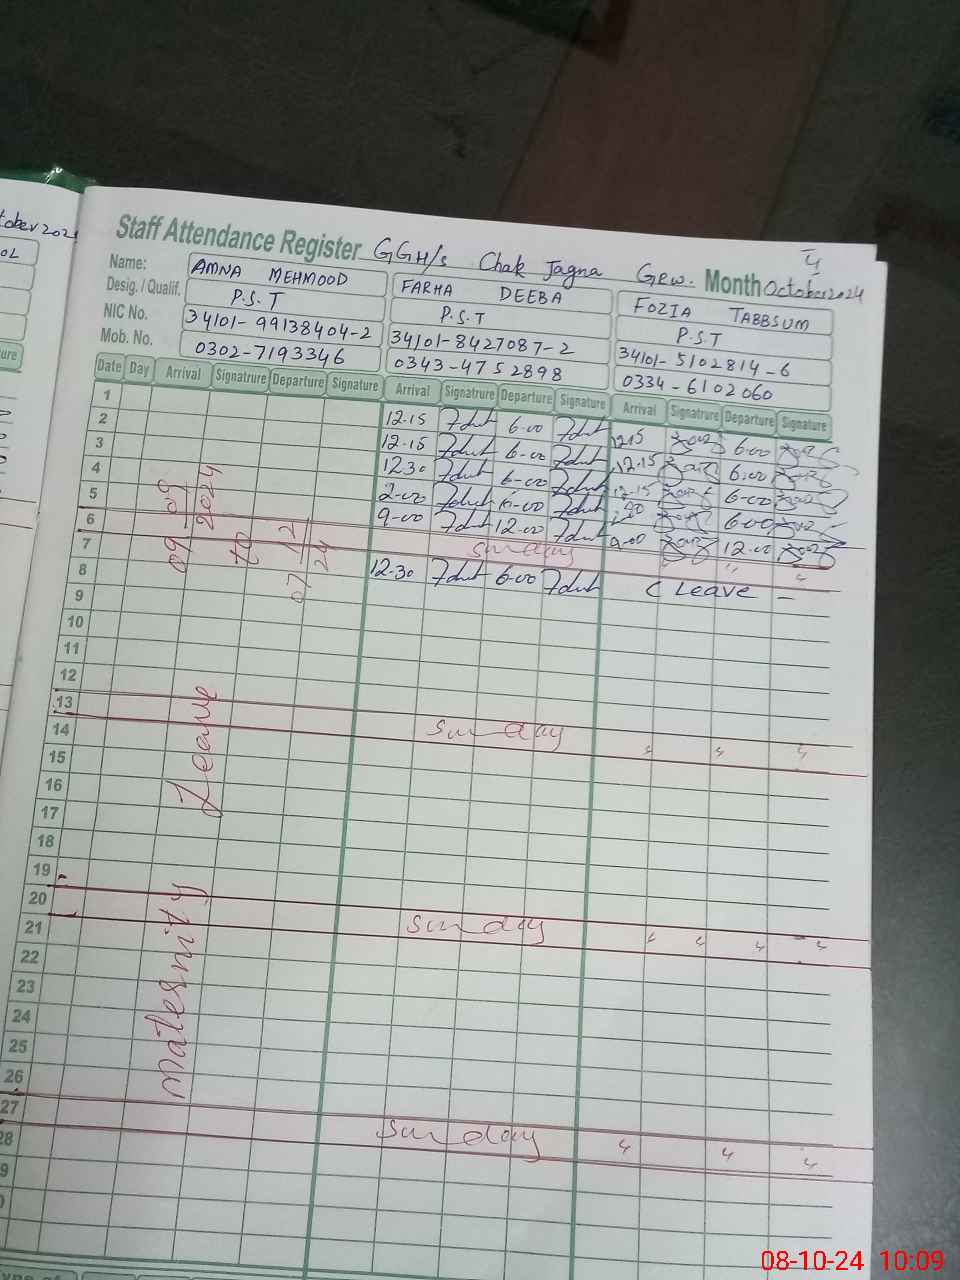 tober 202
OL
ure
4
Staff Attendance Register GGH/s Chak Jagna Grw. Month October 2024
Name: AMNA MEHMOOD FARHA DEEBA FOZIA TABBSUM
Desig. / Qualif. P.S.T P.S.T P.S.T
NIC No. 34101-99138404-2 34101-8427087-2 34101-5102814-6
Mob. No. 0302-7193346 0343-4752898 0334-6102060
Date Day Arrival Signatrure Departure Signature Arrival Signatrure Departure Signature Arrival Signatrure Departure Signature
1 12.15 6-00 12.15 6-00
2 12.15 6-00 12.15 6-00
3 12.30 6-00 12-15 6-00
4 2-00 6-00 6-00
5 9-00 12-00 9-00 12-00
6 Sunday " "
7 12.30 6-00 ( Leave -
8
9
10
11
12
13 Sunday " " "
14
15
16
17
18
19
20 Sunday " " " "
21
22
23
24
25
26
27 Sunday " " "
28
9
0
Maternity Leave 09/09/2024 to 07/12/24
ype of
08-10-24 10:09